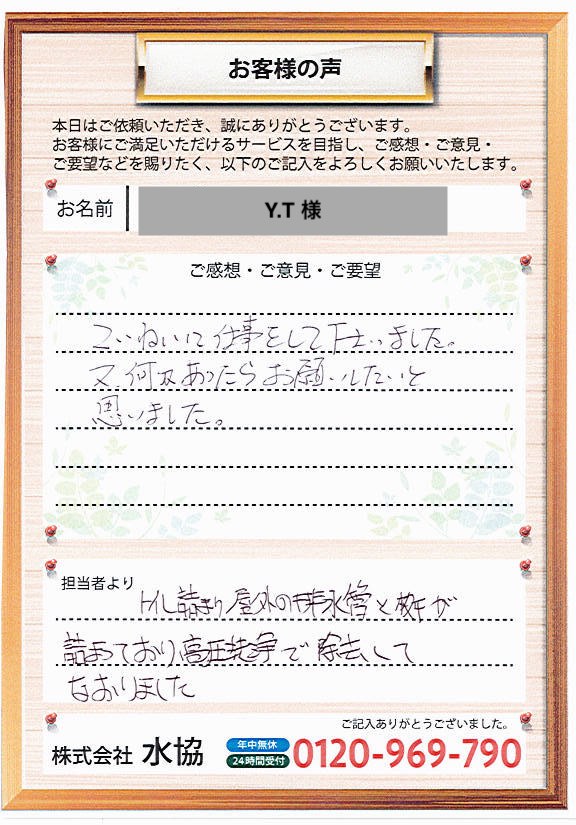 お客様の声
本日はご依頼いただき、誠にありがとうございます。
お客様にご満足いただけるサービスを目指し、ご感想・ご意見・
ご要望などを賜りたく、以下のご記入をよろしくお願いいたします。
お名前 Y.T 様
ご感想・ご意見・ご要望
ていねいに仕事をして下さいました。
又、何かあったらお願いしたいと
思いました。
担当者より
トイレ詰まり屋外の排水管と桝が
詰まっており高圧洗浄で除去して
なおりました
ご記入ありがとうございました。
株式会社 水協 年中無休 24時間受付 0120-969-790